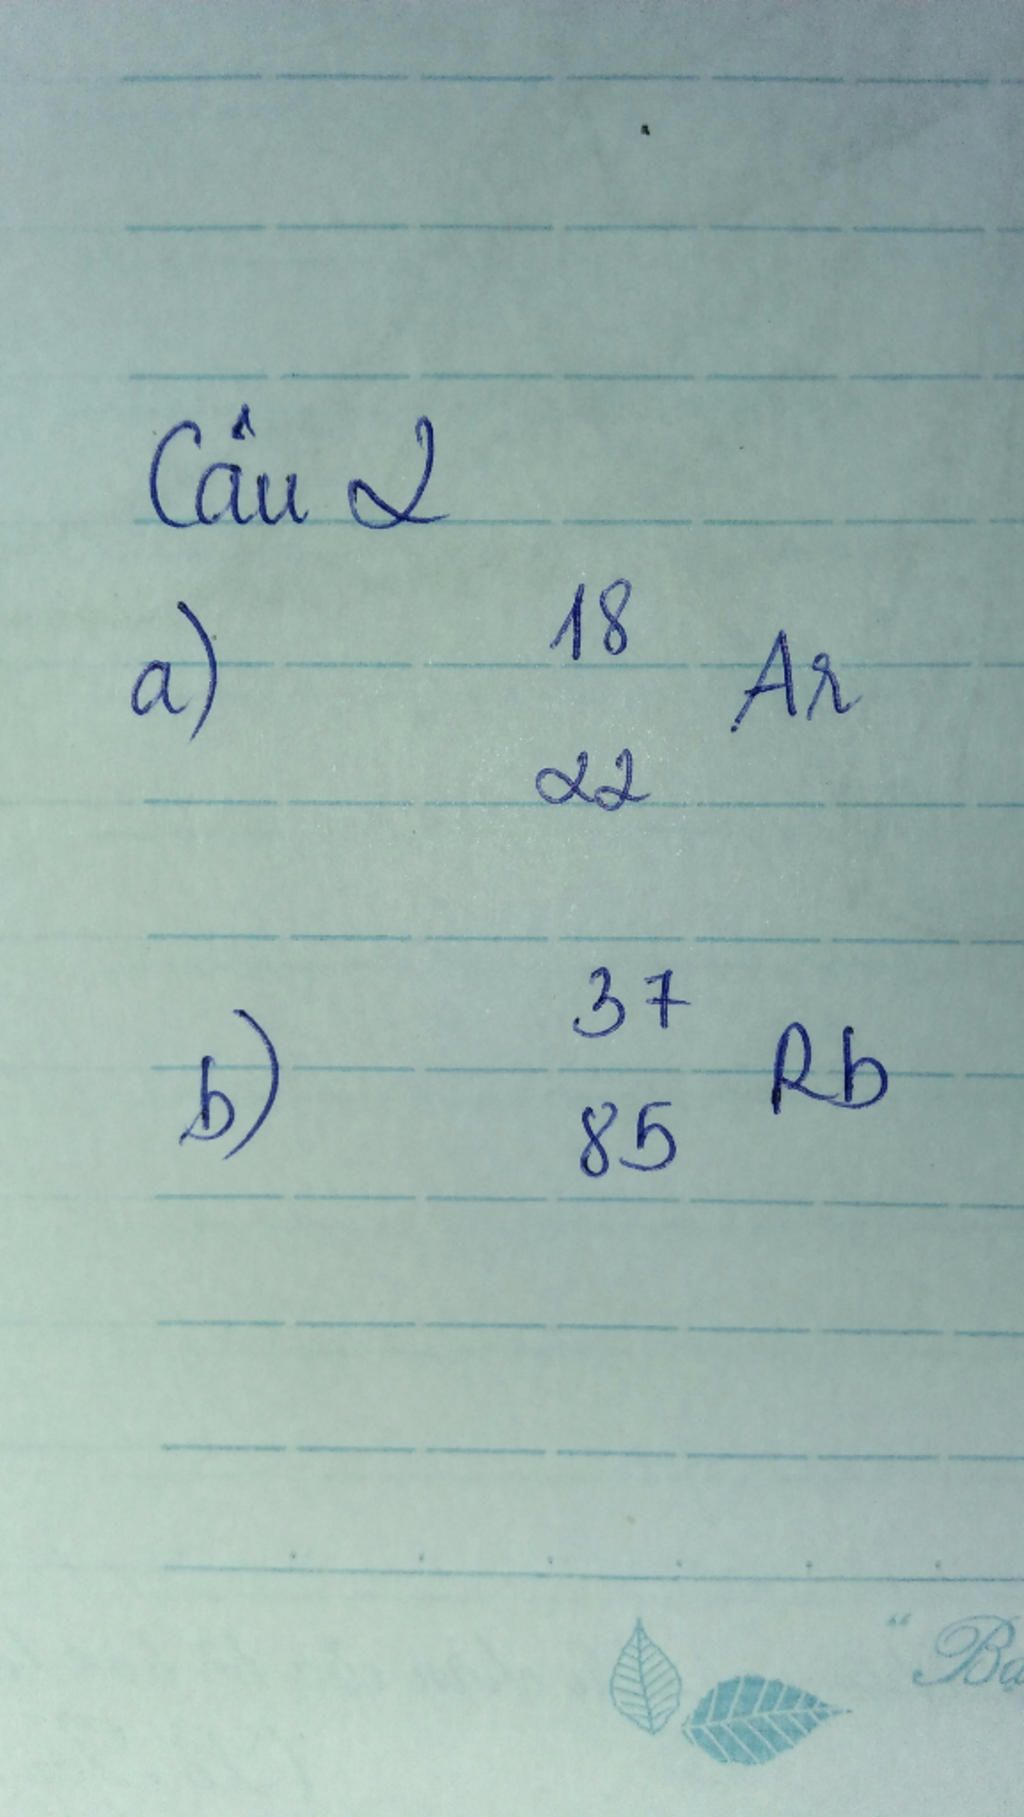 Câu 2
a) 18 Ar
22
b) 37 Rb
85
"